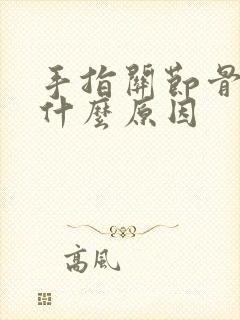 手指關節骨
什麼原因
高風